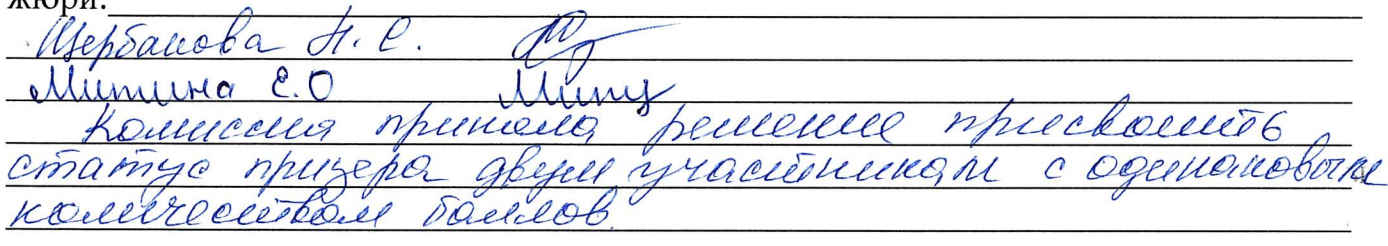 жюри:
Щербакова Н. С.
Митина Е.О
Комиссия приняла решение присвоить
статус призера двум участникам с одинаковым
количеством баллов.